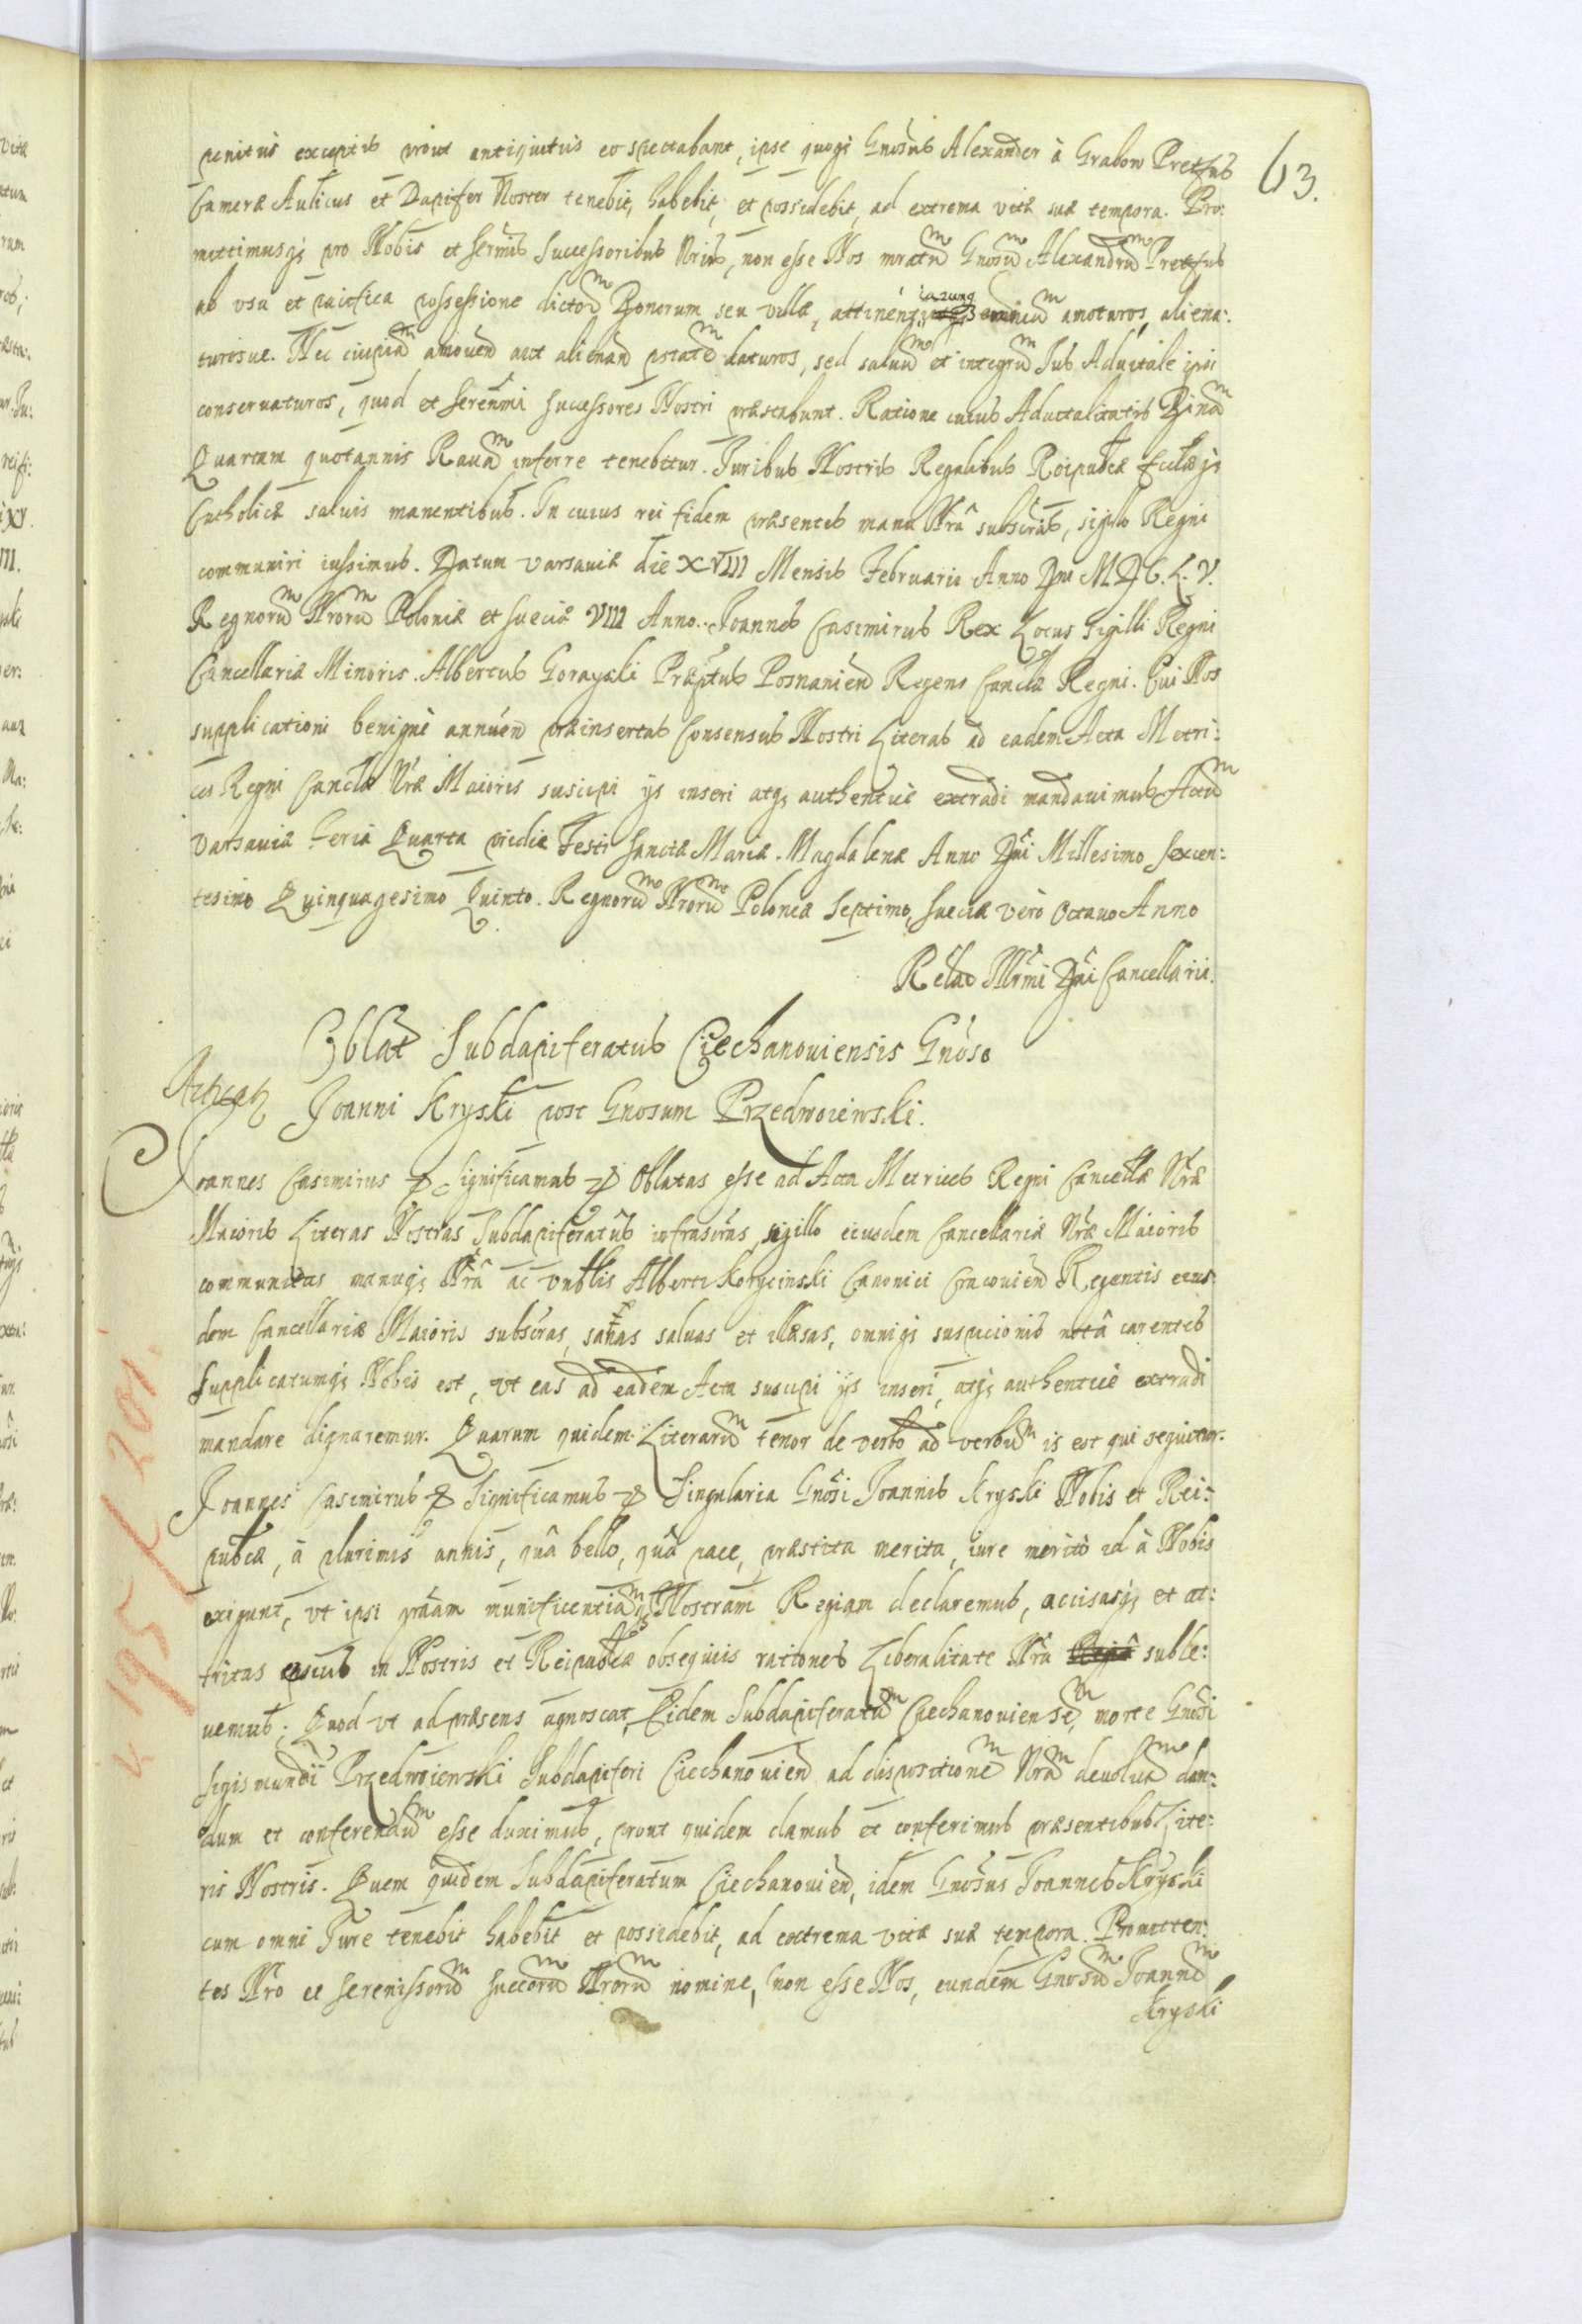 63.
penitus exceptis prout antiquitus eo spectabant, ipse quoq; Gnosus Alexander à Grabow Pretfus
Cameræ Aulicus et Dapifer Noster tenebit, habebit, et possidebit, ad extrema vitæ suæ tempora. Pro:
mittimusq; pro Nobis et Sermis Successoribus Nris, non esse Nos mratum Gnosum Alexandrum Pretfus
ab usu et pacifica possessione dictorum Bonorum seu villæ, attinen; earumq omnium amoturos, aliena:
turosue. Nec cuipiam amouen aut alienan ptatem daturos, sed saluum et integrum Jus Aduitale ipsi
conseruaturos, quod et Serenmi Successores Nostri præstabunt. Ratione cuius Aduitalitatis Binam
Quartam quotannis Rauam inferre tenebitur. Juribus Nostris Regalibus Reipubcæ Ecclæq;
Catholicæ saluis manentibus. In cuius rei fidem præsentes manu Nrâ subscrâs, sigillo Regni
communiri iussimus. Datum Varsauiæ die XVIII Mensis Februarii Anno Dni M.D.C.L.V.
Regnorum Nrorum Poloniæ et Sueciæ VIII Anno. Joannes Casimirus Rex Locus sigilli Regni
Cancellariæ Minoris. Albertus Gorayski Præptus Posnanien Regens Canclæ Regni. Cui Nos
supplicationi benignè annuen præinsertas Consensus Nostri Literas ad eadem Acta Metri:
ces Regni Canclæ Nræ Maioris suscipi ijs inseri atq; authenticè extradi mandauimus Actum
Varsauiæ Feria Quarta pridie Festi Sanctæ Mariæ Magdalenæ Anno Dni Millesimo Sexcen:
tesimo Quinquagesimo Quinto. Regnorum Nrorum Poloniæ Septimo, Sueciæ verò Octauo Anno
Relao Illrmi Dni Cancellarii.
Oblat Subdapiferatus Ciechanouiensis Gnoso
Joanni Kryski post Gnosum Przedwoiewski.
Joannes Casimirus Significamus Oblatas esse ad Acta Metrices Regni Cancellæ Nræ
Maioris Literas Nostras Subdapiferatûs infrascras, sigillo eiusdem Cancellariæ Nræ Maioris
communitas manuq; Nrâ ac Vnblis Alberti Korycinski Canonici Cracouien Regentis eius:
dem Cancellariæ Maioris subscras, sanas saluas et illæsas, omniq; suspicionis notâ carentes
Supplicatumq; Nobis est, vt eas ad eadem Acta suscipi ijs inseri, atq; authenticè extradi
mandare dignaremur. Quarum quidem Literarum tenor de verbo ad verbum is est qui sequitur.
Joannes Casimirus Significamus Singularia Gnosi Joannis Kryski Nobis et Rei:
pubcæ, à plurimis annis, quâ bello, quâ pace, præstita merita, iure meritò id à Nobis
exigunt, vt ipsi grãam munificentiamq; Nostram Regiam declaremus, accisasq; et at:
tritas eius in Nostris et Reipubcæ obsequiis rationes Liberalitate Nrâ Regiâ suble:
uemus. Quod vt ad præsens agnoscat, Eidem Subdapiferatum Ciechanouiensem, morte Gnosi
Sigismundi Przedwoiewski Subdapiferi Ciechanouien ad dispositionem Nram deuolutum dan:
dum et conferendum esse duximus, prout quidem damus et conferimus præsentibus Lite:
ris Nostris. Quem quidem Subdapiferatum Ciechanouien, idem Gnosus Joannes Kryski
cum omni Jure tenebit habebit et possidebit, ad extrema vitæ suæ tempora. Promitten:
tes Nro et Serenissorum Succorum Nrorum nomine, non esse Nos, eundem Gnosum Joannem
Kryski